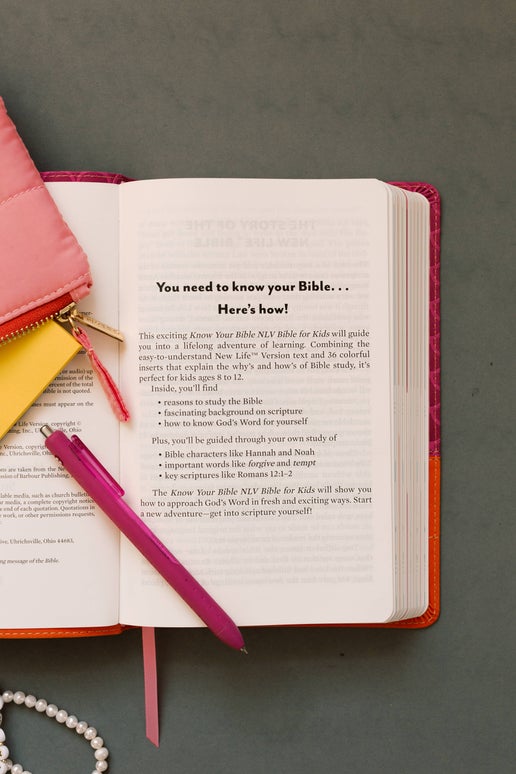 or audio) up
rmission of the
rcent of the total
ble is not quoted.
s must appear on the
Life Version, copyright ©
ng, Inc., Uhrichsville,
Version, copyright ©
c., Uhrichsville, Ohio
ns are taken from the New
ission of Barbour Publishing,
ilable media, such as church bulletins
r media, a complete copyright notice
e end of each quotation. Quotations in
work, or other permissions requests,
ive, Uhrichsville, Ohio 44683,
ng message of the Bible.
THE STORY OF THE
NEW LIFE™ BIBLE
You need to know your Bible. . .
Here's how!
This exciting Know Your Bible NLV Bible for Kids will guide
you into a lifelong adventure of learning. Combining the
easy-to-understand New Life™ Version text and 36 colorful
inserts that explain the why's and how's of Bible study, it's
perfect for kids ages 8 to 12.
Inside, you'll find
• reasons to study the Bible
• fascinating background on scripture
• how to know God's Word for yourself
Plus, you'll be guided through your own study of
• Bible characters like Hannah and Noah
• important words like forgive and tempt
• key scriptures like Romans 12:1–2
The Know Your Bible NLV Bible for Kids will show you
how to approach God's Word in fresh and exciting ways. Start
a new adventure—get into scripture yourself!